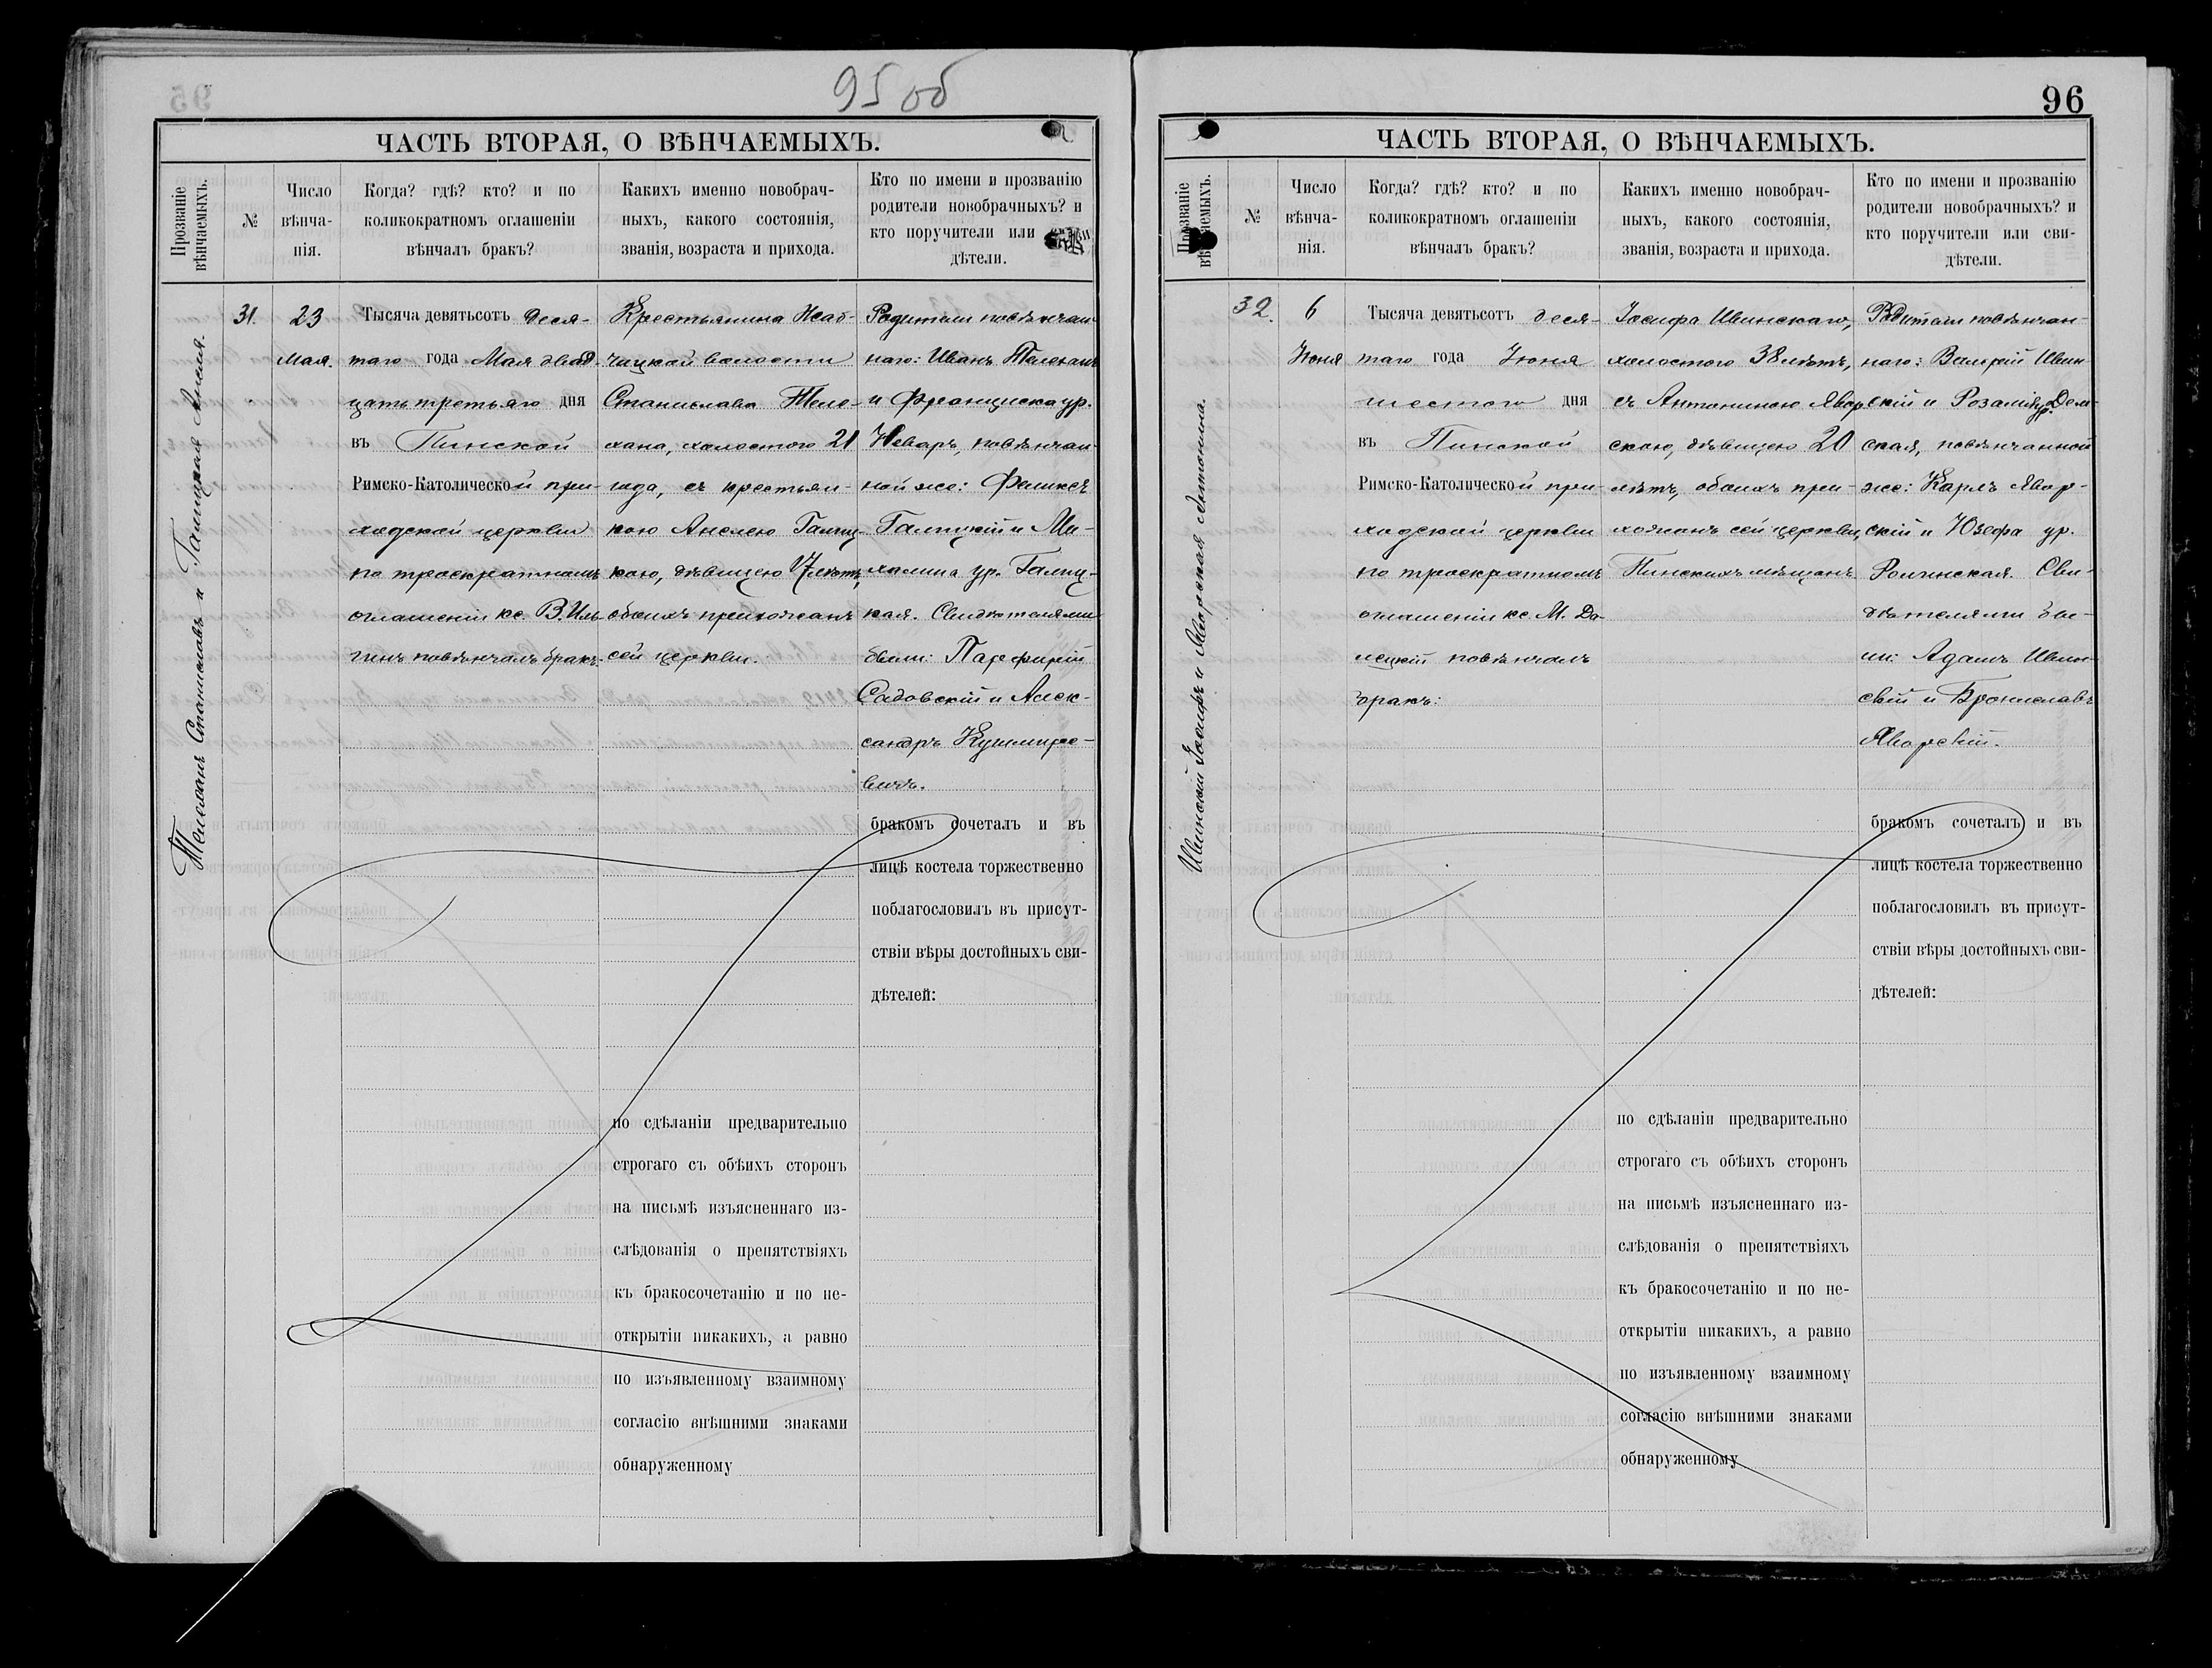 95 об
ЧАСТЬ ВТОРАЯ, О ВѢНЧАЕМЫХЪ.
Прозваніе
вѣнчаемыхъ.
№
Число
вѣнча-
нія.
Когда? гдѣ? кто? и по
коликократномъ оглашеніи
вѣнчалъ бракъ?
Какихъ именно новобрач-
ныхъ, какого состоянія,
званія, возраста и прихода.
Кто по имени и прозванію
родители новобрачныхъ? и
кто поручители или
дѣтели.
Телеханъ Станиславъ и Галицкая
31.
23
Мая.
Тысяча девятьсотъ деся-
таго года Мая двад-
цать третьяго дня
въ Пинской
Римско-Католической при-
ходской церкви
по троекратномъ
оглашеніи кс. В. Иль-
гинъ повѣнчалъ бракъ.
Крестьянина Жаб-
чицкой волости
Станислава Теле-
хана, холостого 21
года, съ крестьян-
кою Анелею Галиц-
кою, дѣвицею 17 лѣтъ,
обоихъ прихожанъ
сей церкви.
Родители повѣнчан-
наго: Иванъ Телеханъ
и Франциска ур.
Неваръ, повѣнчан-
ной же: Феликсъ
Галицкій и Ми-
халина ур. Галиц-
кая. Свидѣтелями
были: Парфирій
Садовскій и Алек-
сандръ Кушмире-
вичъ.
бракомъ сочеталъ и въ
лицѣ костела торжественно
поблагословилъ въ присут-
ствіи вѣры достойныхъ сви-
дѣтелей:
по сдѣланіи предварительно
строгаго съ обѣихъ сторонъ
на письмѣ изъясненнаго из-
слѣдованія о препятствіяхъ
къ бракосочетанію и по не-
открытіи никакихъ, а равно
по изъявленному взаимному
согласію внѣшними знаками
обнаруженному
96
ЧАСТЬ ВТОРАЯ, О ВѢНЧАЕМЫХЪ.
Прозваніе
вѣнчаемыхъ.
№
Число
вѣнча-
нія.
Когда? гдѣ? кто? и по
коликократномъ оглашеніи
вѣнчалъ бракъ?
Какихъ именно новобрач-
ныхъ, какого состоянія,
званія, возраста и прихода.
Кто по имени и прозванію
родители новобрачныхъ? и
кто поручители или сви-
дѣтели.
Ивинскій Іосифъ и Яворская Антонина.
32.
6
Июня
Тысяча девятьсотъ деся-
таго года Июня
шестого дня
въ Пинской
Римско-Католической при-
ходской церкви
по троекратномъ
оглашеніи кс. М. До-
лецкій повѣнчалъ
бракъ:
Іосифа Ивинскаго,
холостого 38 лѣтъ,
съ Антониною Явор-
скою, дѣвицею 20
лѣтъ, обоихъ при-
хожанъ сей церкви,
Пинскихъ мѣщанъ.
Родители повѣнчан-
наго: Валерій Ивин-
скій и Розалія ур.
ская, повѣнчанной
же: Карлъ Явор-
скій и Юзефа ур.
Сви-
дѣтелями бы-
ли: Адамъ Ивин-
скій и Брониславъ
Яворскій.
бракомъ сочеталъ и въ
лицѣ костела торжественно
поблагословилъ въ присут-
ствіи вѣры достойныхъ сви-
дѣтелей:
по сдѣланіи предварительно
строгаго съ обѣихъ сторонъ
на письмѣ изъясненнаго из-
слѣдованія о препятствіяхъ
къ бракосочетанію и по не-
открытіи никакихъ, а равно
по изъявленному взаимному
согласію внѣшними знаками
обнаруженному